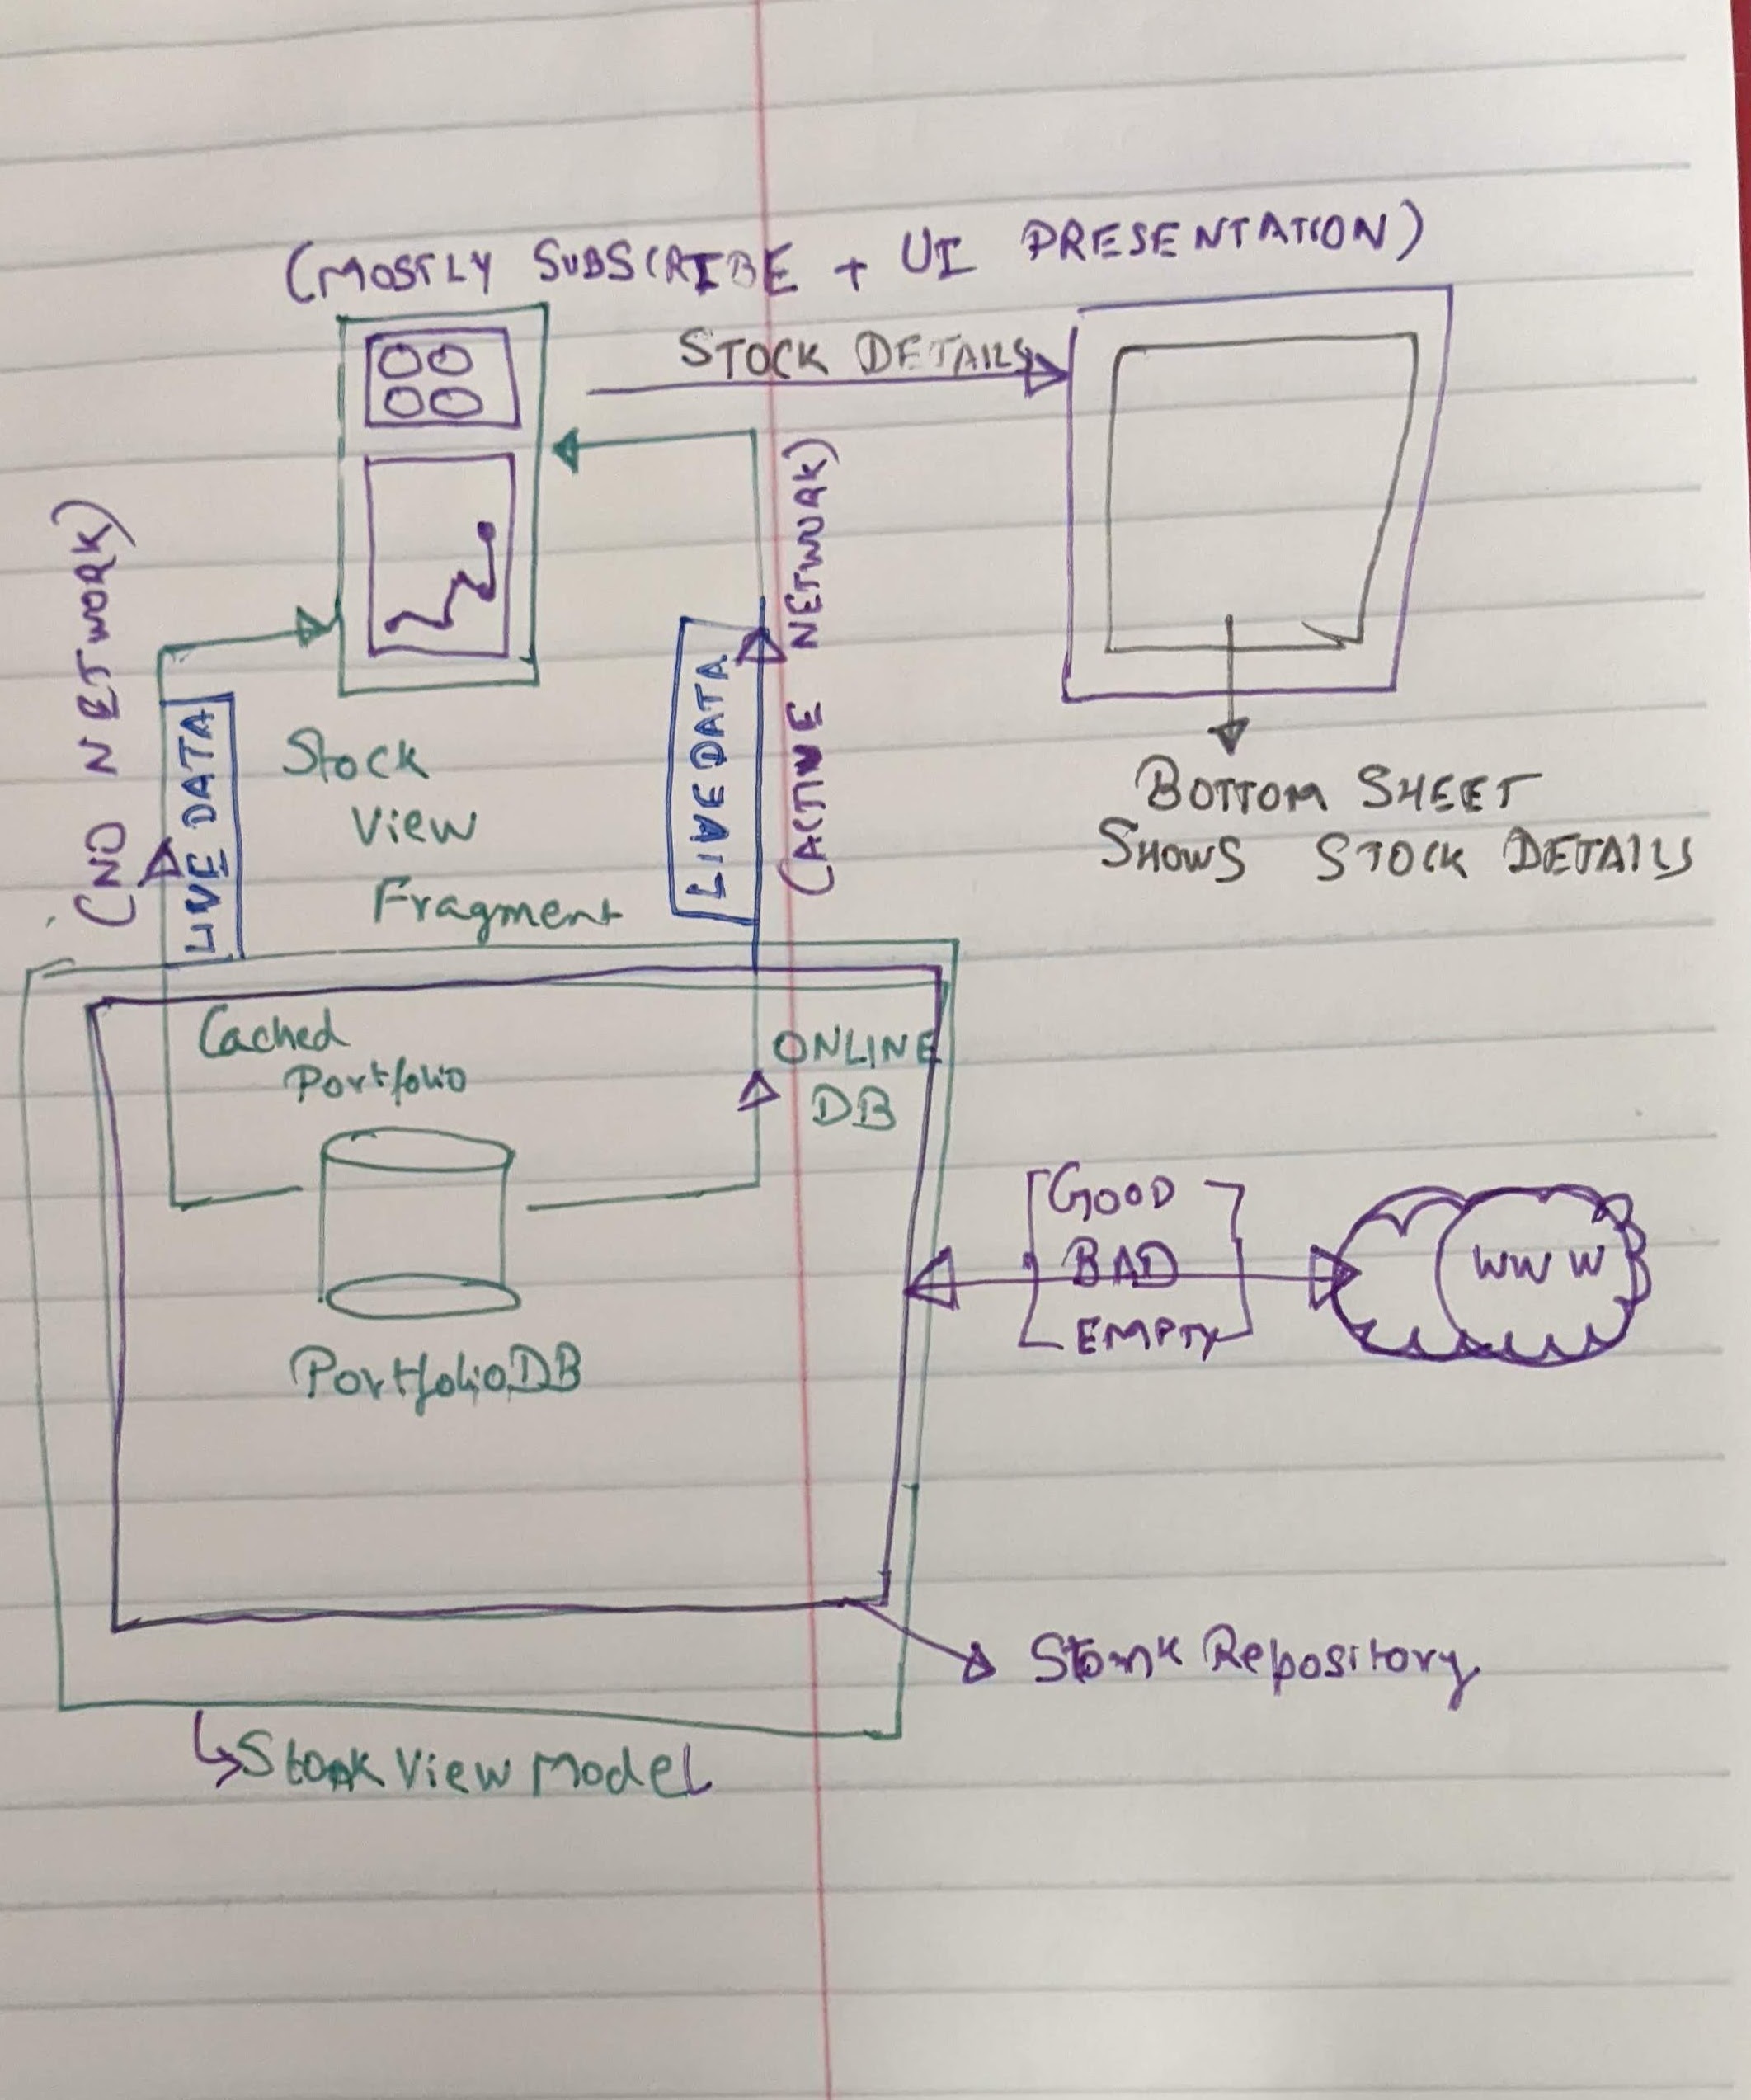 (MOSTLY SUBSCRIBE + UI PRESENTATION)
STOCK DETAILS
(NO NETWORK)
LIVE DATA
Stock
View
Fragment
LIVEDATA
(ACTIVE NETWORK)
BOTTOM SHEET
SHOWS STOCK DETAILS
Cached
Portfolio
ONLINE
DB
PortfolioDB
GOOD
BAD
EMPTY
WWW
Stonk Repository
Stonk View Model